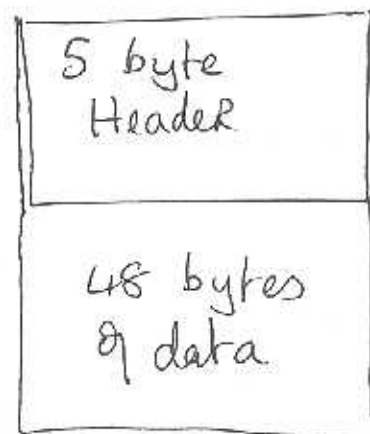 5 byte
Header
48 bytes
of data